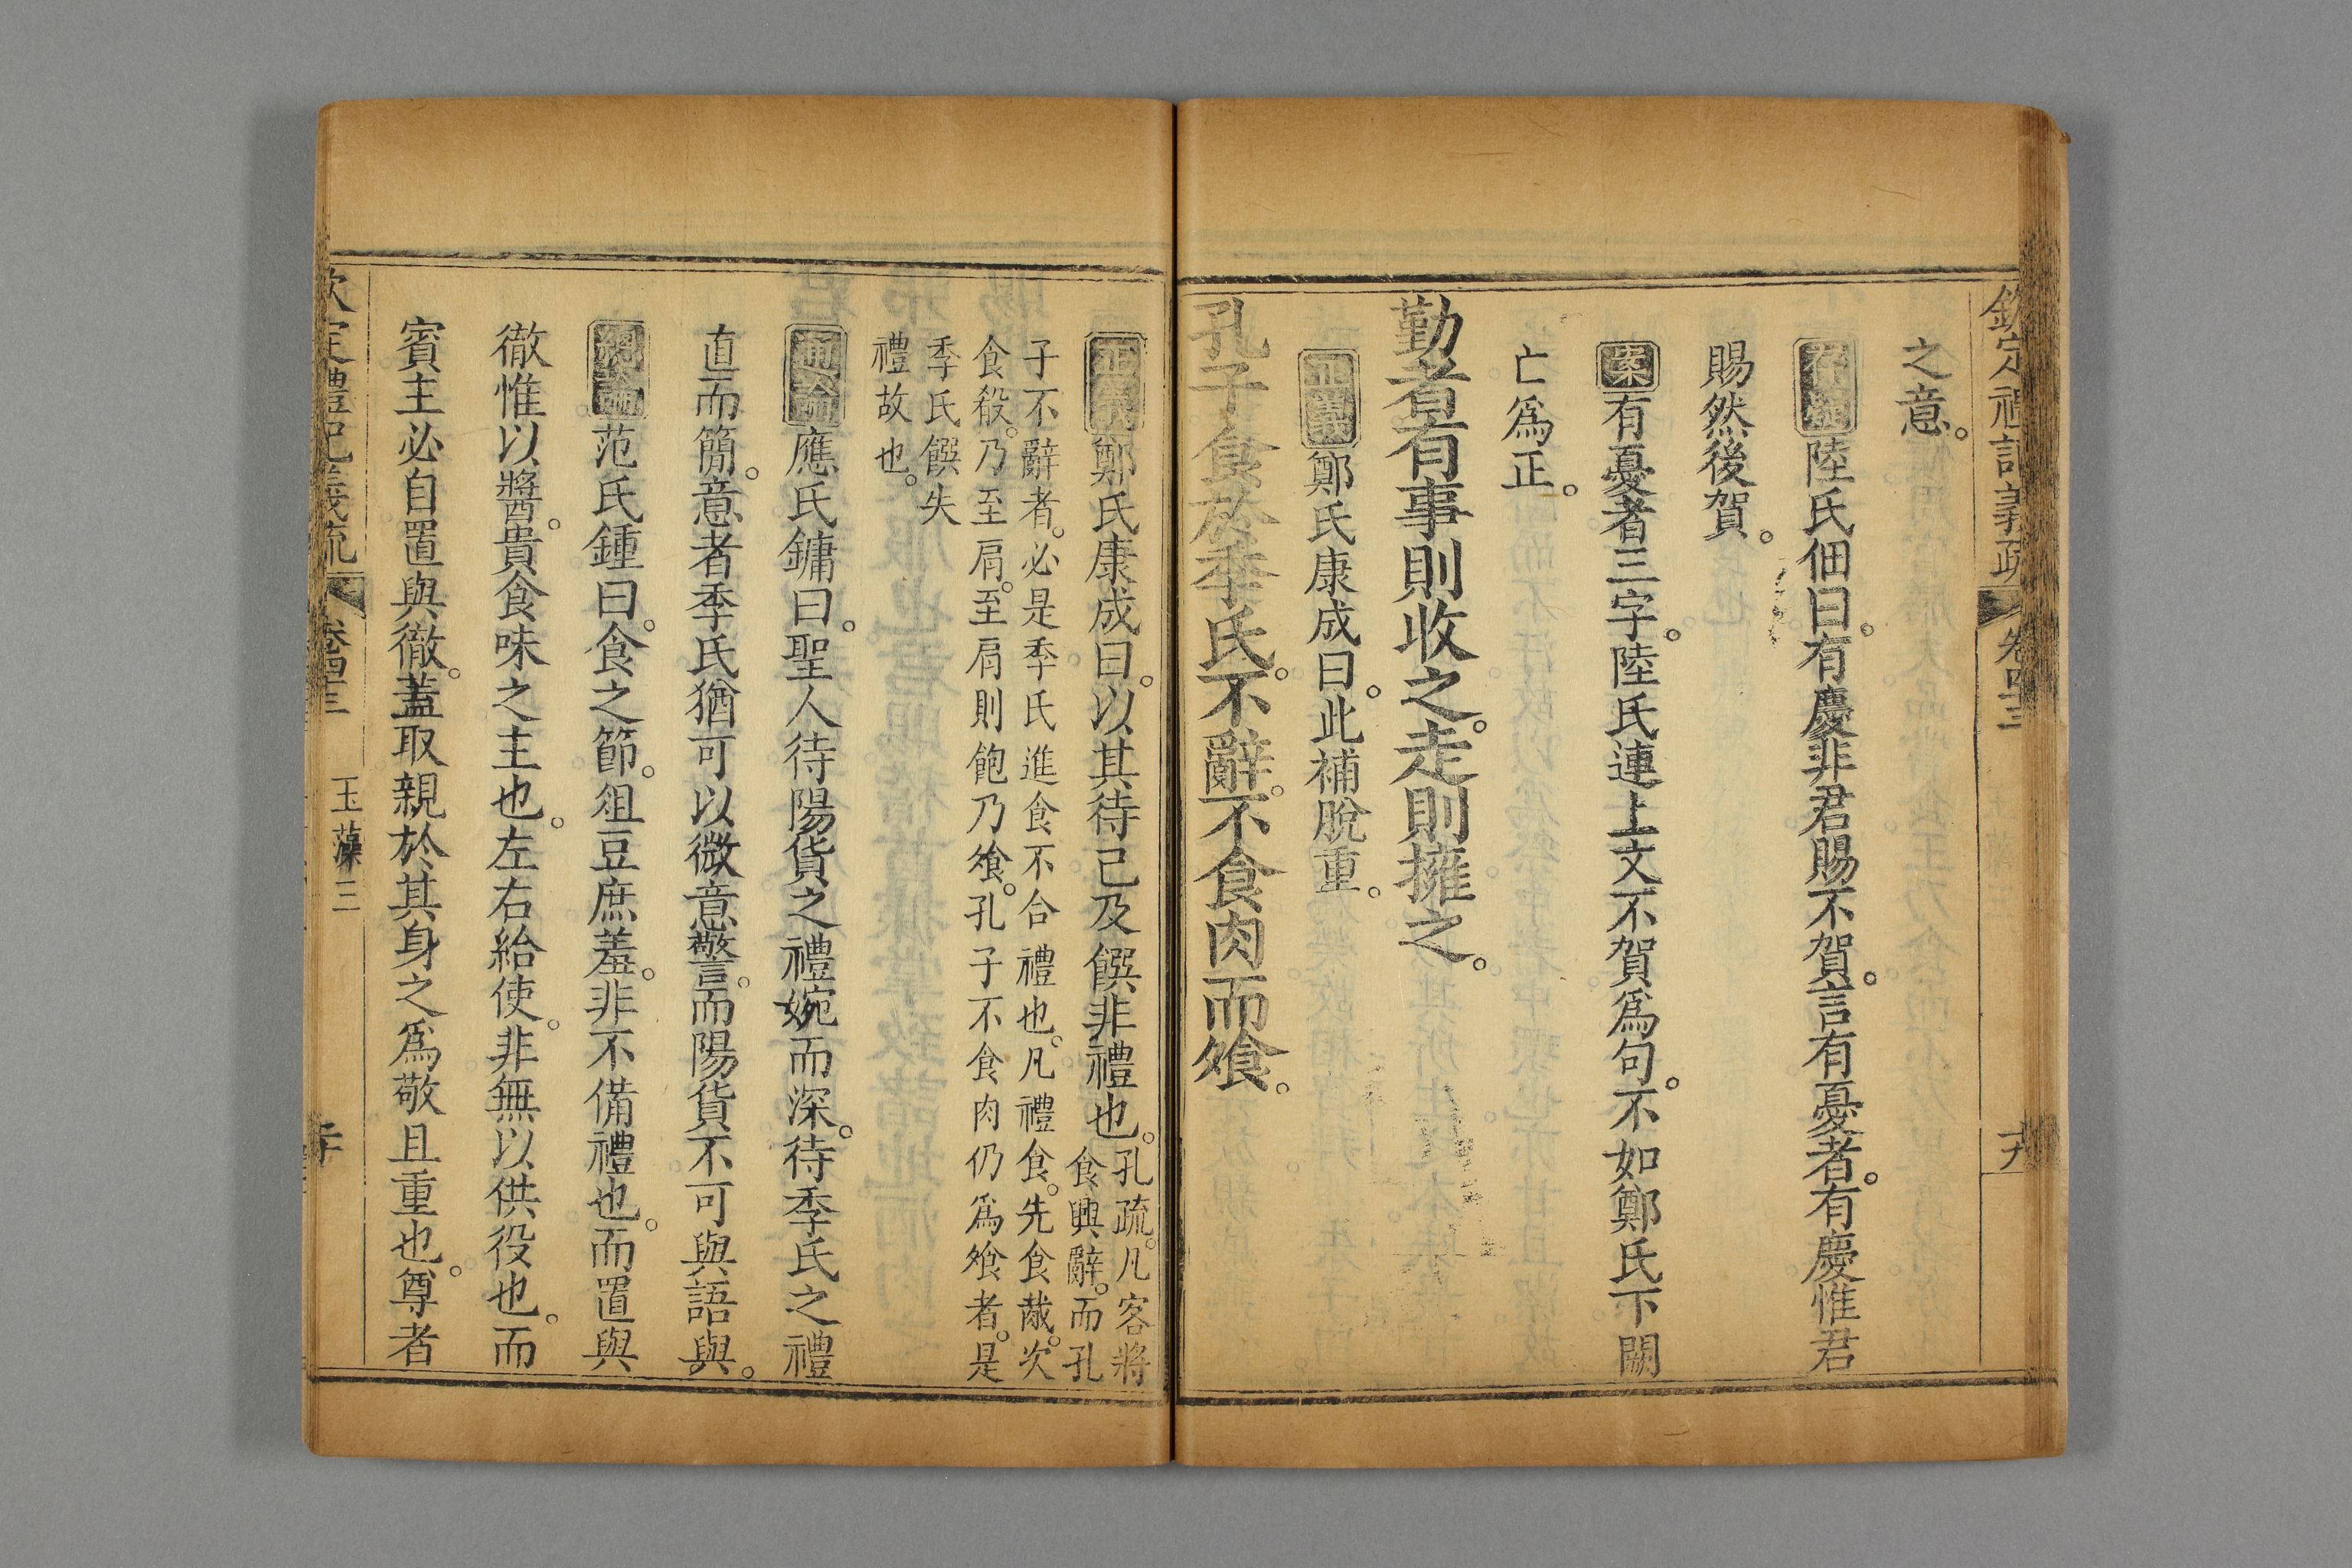 欽定禮記義疏 卷四十三 十九
之意。
存疑 陸氏佃曰。有慶非君賜不賀。言有憂者。有慶惟君
賜然後賀。
案 有憂者三字。陸氏連上文不賀爲句。不如鄭氏下闕
亡爲正。
勤者有事則收之。走則擁之。
正義 鄭氏康成曰。此補脫重。
孔子食於季氏。不辭。不食肉而飧。
正義 鄭氏康成曰。以其待己及饌非禮也。孔疏。凡客將
食興辭。而孔
子不辭者。必是季氏進食不合禮也。凡禮食。先食胾。次
食殽。乃至肩。至肩則飽乃飧。孔子不食肉仍爲飧者。是
季氏饌失
禮故也。
通論 應氏鏞曰。聖人待陽貨之禮婉而深。待季氏之禮
直而簡。意者季氏猶可以微意警。而陽貨不可與語與。
總論 范氏鍾曰。食之節。俎豆庶羞。非不備禮也。而置與
徹惟以醬。貴食味之主也。左右給使。非無以供役也。而
賓主必自置與徹。蓋取親於其身之爲敬且重也。尊者
欽定禮記義疏 卷四十三 玉藻三 二十